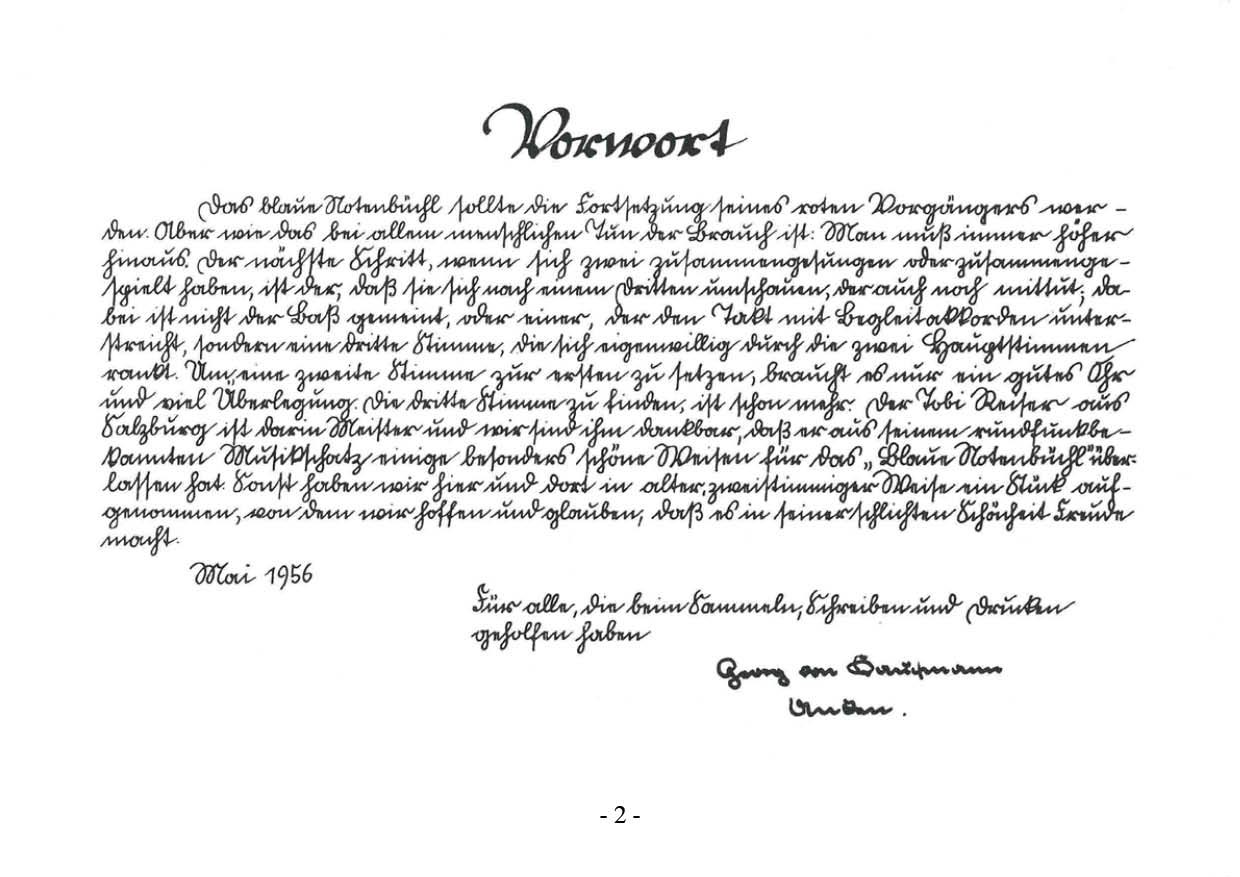 Vorwort
Das blaue Notenbüchl sollte die Fortsetzung seines roten Vorgängers wer-
den. Aber wie das bei allem menschlichen Tun der Brauch ist: Man muß immer höher
hinaus. Der nächste Schritt, wenn sich zwei zusammengesungen oder zusammenge-
spielt haben, ist der, daß sie sich nach einem Dritten umschauen, der auch noch mittut; da-
bei ist nicht der Baß gemeint, oder einer, der den Takt mit Begleitakkorden unter-
streicht, sondern eine dritte Stimme, die sich eigenwillig durch die zwei Hauptstimmen
rankt. Um eine zweite Stimme zur ersten zu setzen, braucht es nur ein gutes Ohr
und viel Überlegung. Die dritte Stimme zu finden, ist schon mehr. Der Tobi Reiser aus
Salzburg ist darin Meister und wir sind ihm dankbar, daß er aus seinem rundfunkbe-
kannten Musikschatz einige besonders schöne Weisen für das „Blaue Notenbüchl" über-
lassen hat. Sonst haben wir hier und dort in alter, zweistimmiger Weise ein Stück auf-
genommen, von dem wir hoffen und glauben, daß es in seiner schlichten Schöcheit Freude
macht.
Mai 1956
Für alle, die beim Sammeln, Schreiben und Drucken
geholfen haben
Georg von Kaufmann
- 2 -